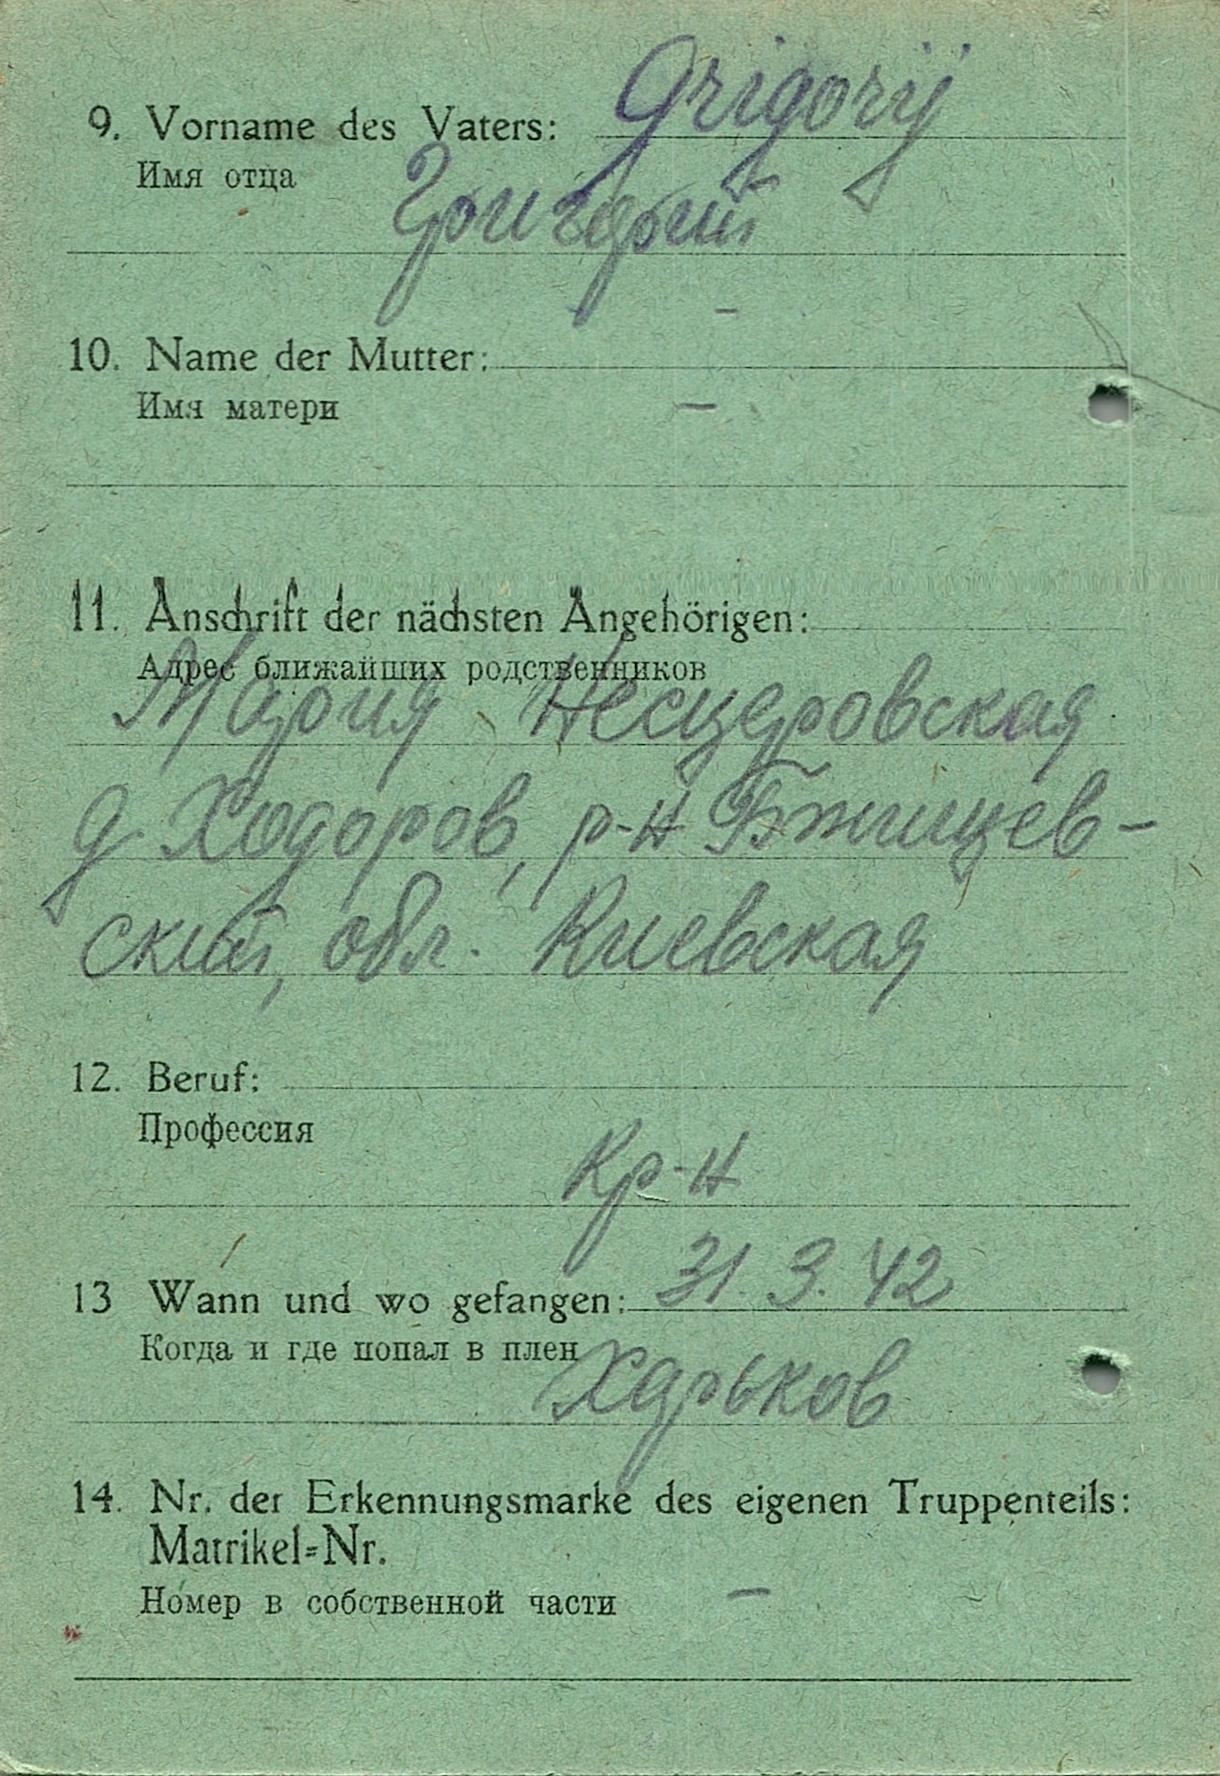 9. Vorname des Vaters: Grigorij
Имя отца
Григорий
-
10. Name der Mutter:
Имя матери -
11. Anschrift der nächsten Angehörigen:
Адрес ближайших родственников
Мария Несцеровская
д. Ходоров, р-н Бжищев-
ский, обл. Киевская
12. Beruf:
Профессия
Кр-н
13 Wann und wo gefangen: 31. 3. 42
Когда и где попал в плен
Харьков
14. Nr. der Erkennungsmarke des eigenen Truppenteils:
Matrikel=Nr.
Номер в собственной части -